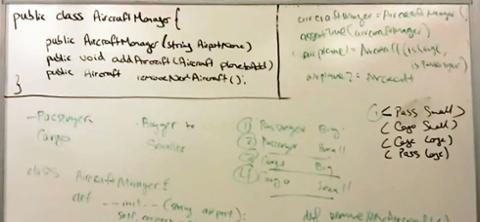 public class AircraftManager {
public AircraftManager (string AirportName)
public void addAircraft (Aircraft planetoAdd)
public Aircraft removeNextAircraft();
}
aircraftManager = AircraftManager (
assertTrue (aircraftManager)
airplane1 = Aircraft (isLarge,
isPassenger)
airplane2 = Aircraft
- Passenger
Cargo
- Bigger to
Smaller
① Passenger Big
② Passenger Small
③ Cargo Big
④ Cargo Small
< Pass Small >
( Cargo Small )
( Cargo Large )
( Pass Large )
class AircraftManager {
def __init__ (string airport):